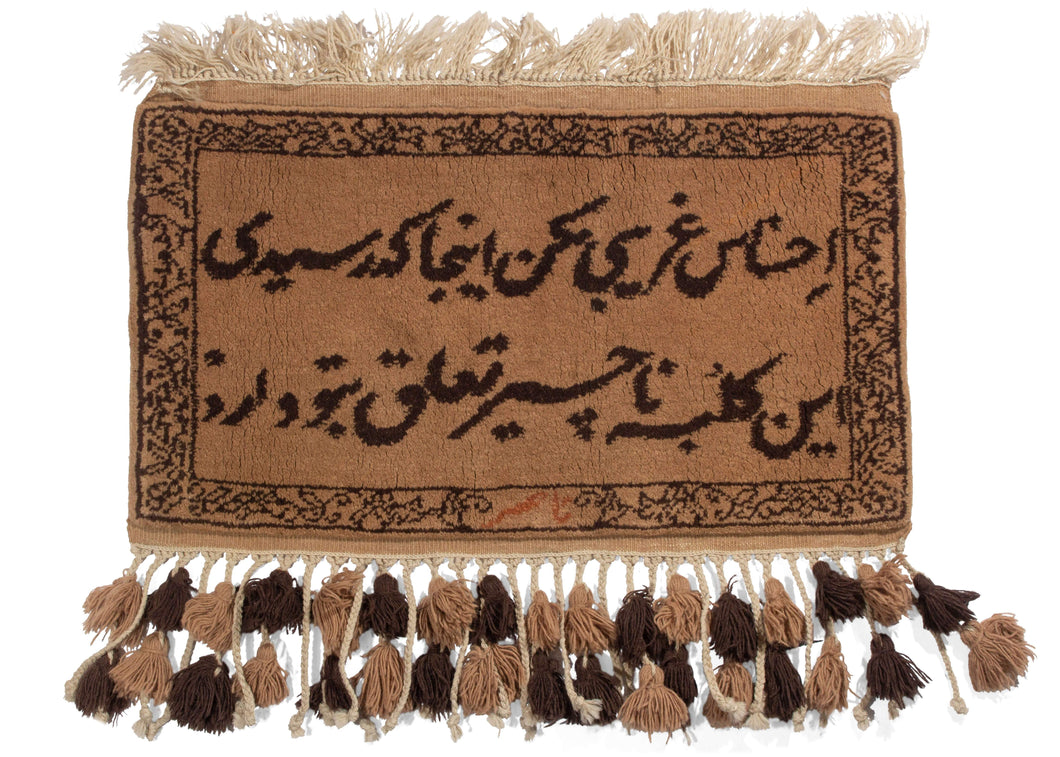 اِحساس غریبی مکن اینجا که رسیدی
این کلبه ناچیز تعلق بتو دارد